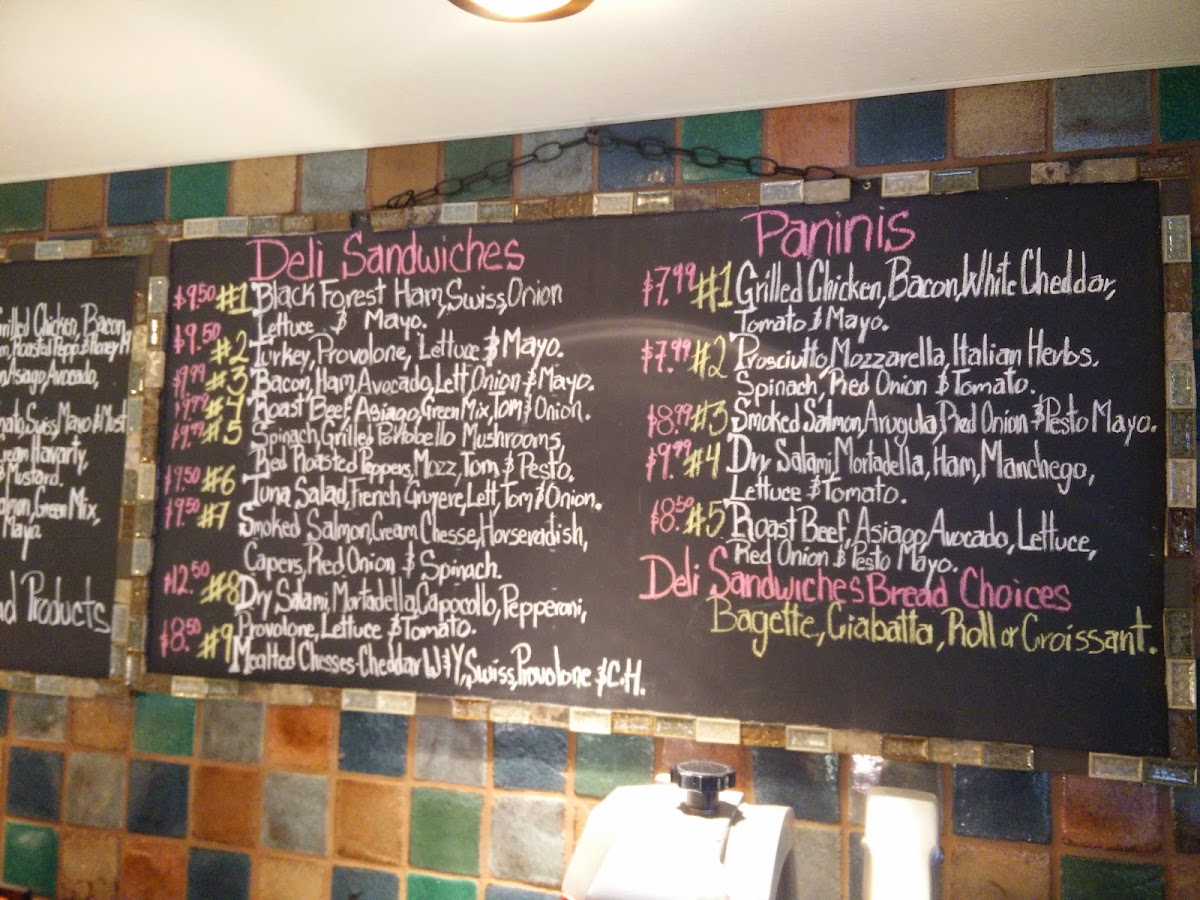 Grilled Chicken, Bacon,
Roasted Pepp. & Honey M
Asiago, Avocado,
Swiss, Mayo & Must
Cream Havarty,
& Mustard.
Green Mix,
Mayo
Products
Deli Sandwiches
$9.50 #1 Black Forest Ham, Swiss, Onion
Lettuce & Mayo.
$9.50 #2 Turkey, Provolone, Lettuce & Mayo.
$9.99 #3 Bacon, Ham, Avocado, Lett Onion & Mayo.
$9.99 #4 Roast Beef, Asiago, Green Mix, Tom & Onion.
$9.99 #5 Spinach, Grilled Portobello Mushrooms,
Red Roasted Peppers, Mozz, Tom & Pesto.
$9.50 #6 Tuna Salad, French Gruyere, Lett, Tom & Onion.
$9.50 #7 Smoked Salmon, Cream Chesse, Horseradish,
Capers, Red Onion & Spinach.
$12.50 #8 Dry Salami, Mortadella, Capocollo, Pepperoni,
Provolone, Lettuce & Tomato.
$8.50 #9 Mealted Chesses-Cheddar W&Y, Swiss, Provolone & C.H.
Paninis
$7.99 #1 Grilled Chicken, Bacon, White Cheddar,
Tomato & Mayo.
$7.99 #2 Prosciutto, Mozzarella, Italian Herbs,
Spinach, Red Onion & Tomato.
$8.99 #3 Smoked Salmon, Arugula, Red Onion & Pesto Mayo.
$9.99 #4 Dry Salami, Mortadella, Ham, Manchego,
Lettuce & Tomato.
$8.50 #5 Roast Beef, Asiago, Avocado, Lettuce,
Red Onion & Pesto Mayo.
Deli Sandwiches Bread Choices
Bagette, Ciabatta, Roll or Croissant.